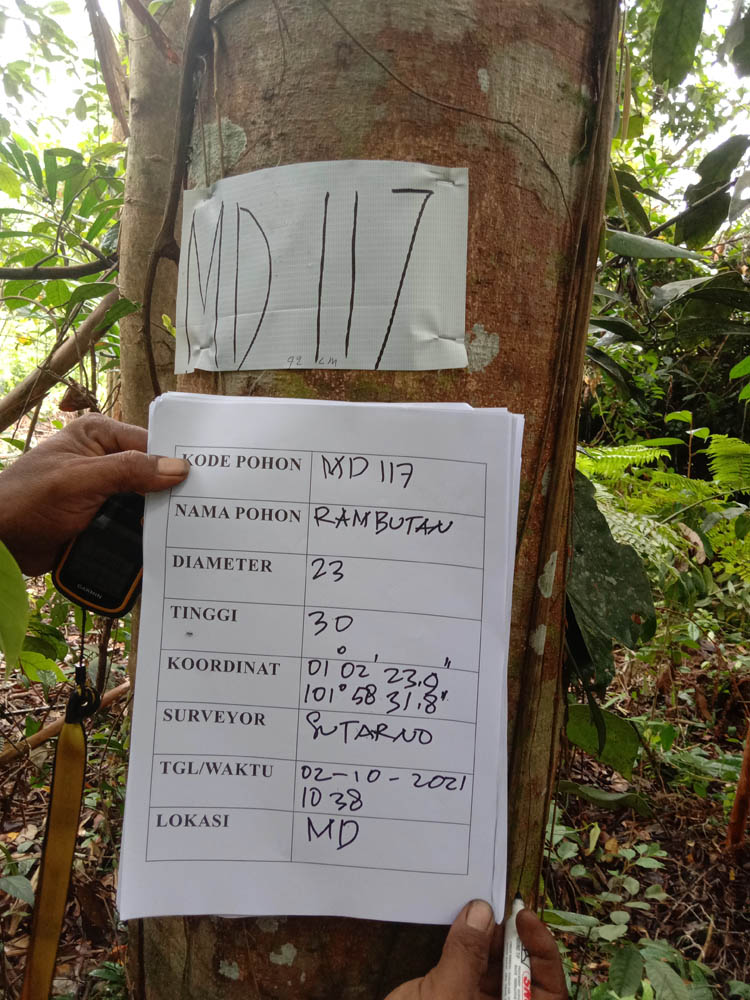 MD 117
92 cm
KODE POHON MD 117
NAMA POHON RAMBUTAN
DIAMETER 23
TINGGI 30
KOORDINAT 01° 02' 23,0"
101° 58 31,8"
SURVEYOR SUTARNO
TGL/WAKTU 02-10-2021
10 38
LOKASI MD
GARMIN